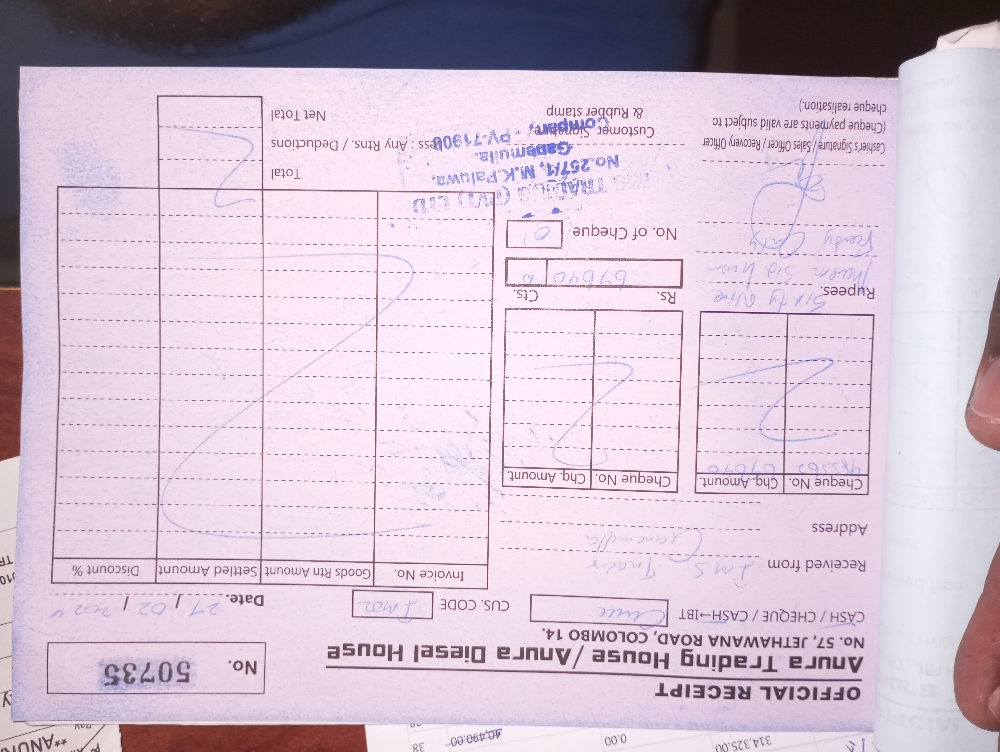 OFFICIAL RECEIPT
Anura Trading House / Anura Diesel House
No. 57, JETHAWANA ROAD, COLOMBO 14.
No. 50735
CASH / CHEQUE / CASH→IBT
CUS. CODE
Date. 27 / 02 /
Received from IMS
Address
Cheque No. Chq. Amount. Cheque No. Chq. Amount.
69640
Rupees. Sixty Nine
Rs. Cts.
69640
No. of Cheque 01
Invoice No. Goods Rtn Amount Settled Amount Discount %
Total
Less : Any Rtns. / Deductions
Net Total
TRADING (PVT) LTD
No.257/1, M.K.Paluwa.
Ganemulla.
Company - PV-71908
Customer Signature,
& Rubber stamp
Cashier's Signature/ Sales Officer / Recovery Officer
(Cheque payments are valid subject to
cheque realisation.)
40,490.00
0.00
314,325.00
38